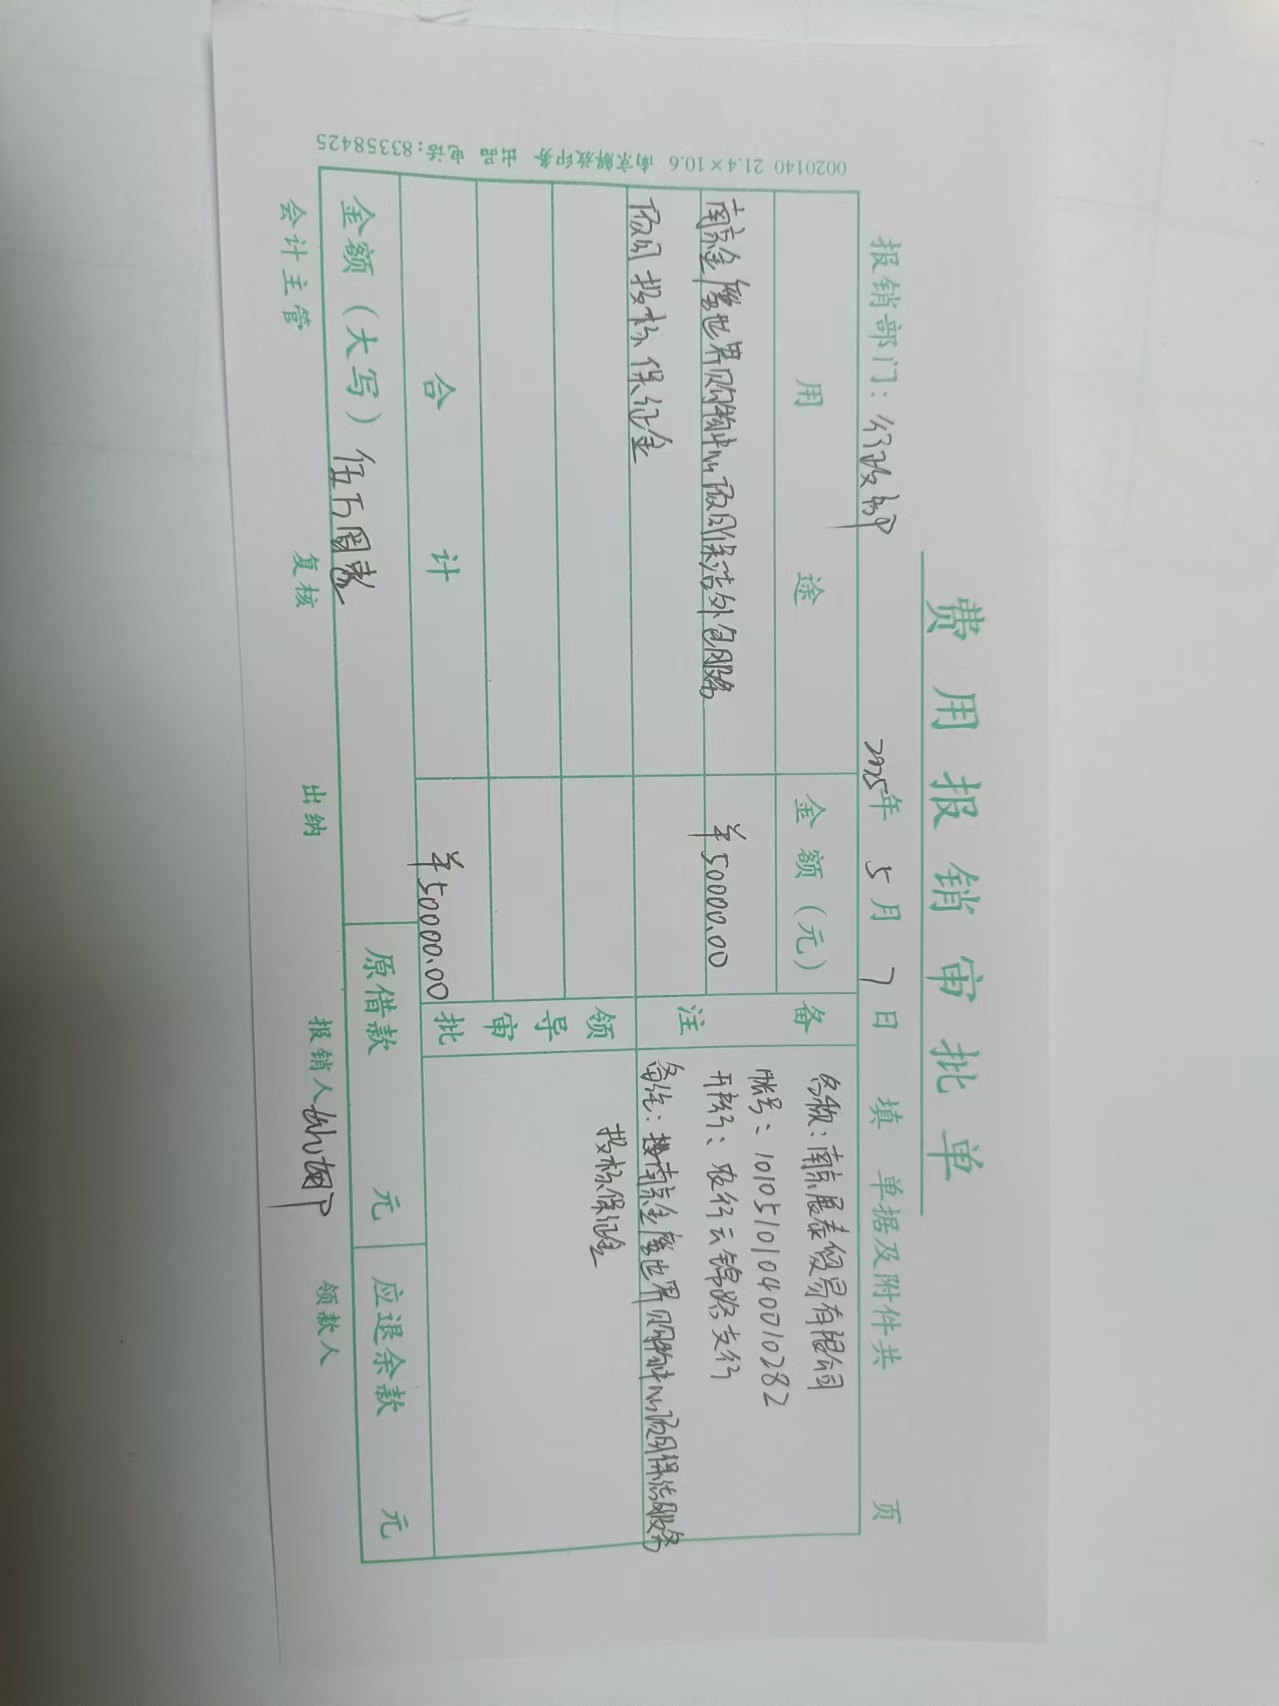 费用报销审批单
报销部门：行政部 2025年 5月 7日 填 单据及附件共 页
用途 金额（元） 备注
南京金鹰世界购物中心项目保洁外包服务 ¥50000.00
项目投标保证金
名称：南京展泰贸易有限公司
账号：10105101040010282
开户行：农行云锦路支行
备注：南京金鹰世界购物中心项目保洁服务
投标保证金
领导审批
合计 ¥50000.00
金额（大写）伍万圆整 原借款 元 应退余款 元
会计主管 复核 出纳 报销人 领款人
0020140 21.4×10.6 南京解放印务 出品 电话：83358425